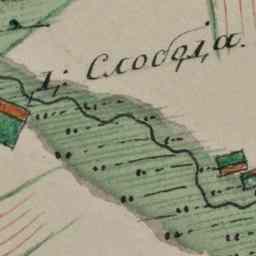 д: Слобода.